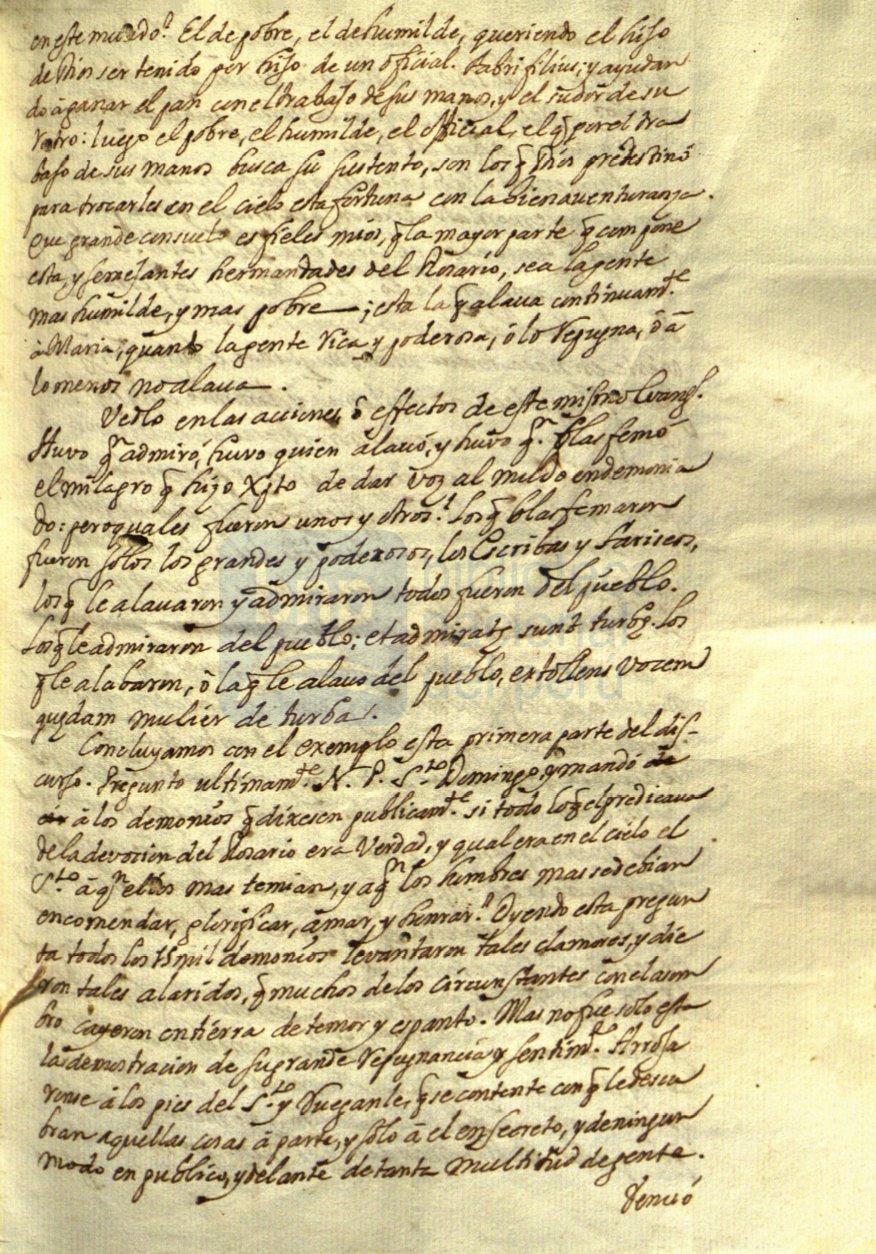 en este mundo? El de pobre, el de humilde, queriendo el hijo
de Dios ser tenido por hijo de un oficial. Fabri filius; y ayudan
do à ganar el pan con el trabajo de sus manos, y el sudor de su
rostro: luego el pobre, el humilde, el oficial, el q̃ por el tra
bajo de sus manos busca su sustento, son los q̃ Dios predestinó
para trocarles en el cielo esta fortuna con la bienaventuranza.
Que grande consuelo es fieles mios, q̃ la mayor parte q̃ compone
esta, y semejantes hermandades del Rosario, sea la gente
mas humilde, y mas pobre; esta la q̃ alava continuam.te
à Maria, quando la gente rica y poderosa, ò lo repugna, ò à
lo menos no alava.
Vedlo en las acciones, ò effectos de este mismo Evang.
Huvo q.n admiró, huvo quien alavó, y huvo q.n blasfemó
el milagro q̃ hizo Xpto de dar voz al mudo endemonia
do: pero quales fueron unos y otros? Los q̃ blasfemaron
fueron solos los grandes y poderosos, los Escribas y Fariseos,
los q̃ le alavaron y admiraron todos fueron del pueblo.
Los q̃ le admiraron del pueblo; et admiratę sunt turbę. Los
q̃ le alabaron, ò la q̃ le alavò del pueblo, extollens vocem
quędam mulier de turba.
Concluyamos con el exemplo esta primera parte del dis-
curso. Pregunto ultimam.te N. P. S.to Domingo, y mandó
à los demonios q̃ dixesen publicam.te si todo lo q̃ el predicava
de la devocion del Rosario era verdad, y qual era en el cielo el
S.to à q.n ellos mas temian, y a q.n los hombres mas se debian
encomendar, glorificar, amar, y honrar? Oyendo esta pregun
ta todos los mil demonios levantaron tales clamores, y die
ron tales alaridos, q̃ muchos de los circunstantes con el asom
bro cayeron en tierra de temor y espanto. Mas no fue solo esta
la demostracion de su grande repugnancia y sentim.to Arroja
ronse à los pies del S.to y Rueganle, q̃ se contente con q̃ le descu
bran aquellas cosas à parte, y sólo à el en secreto, y de ningun
modo en publico, y delante de tanta multitud de gente.